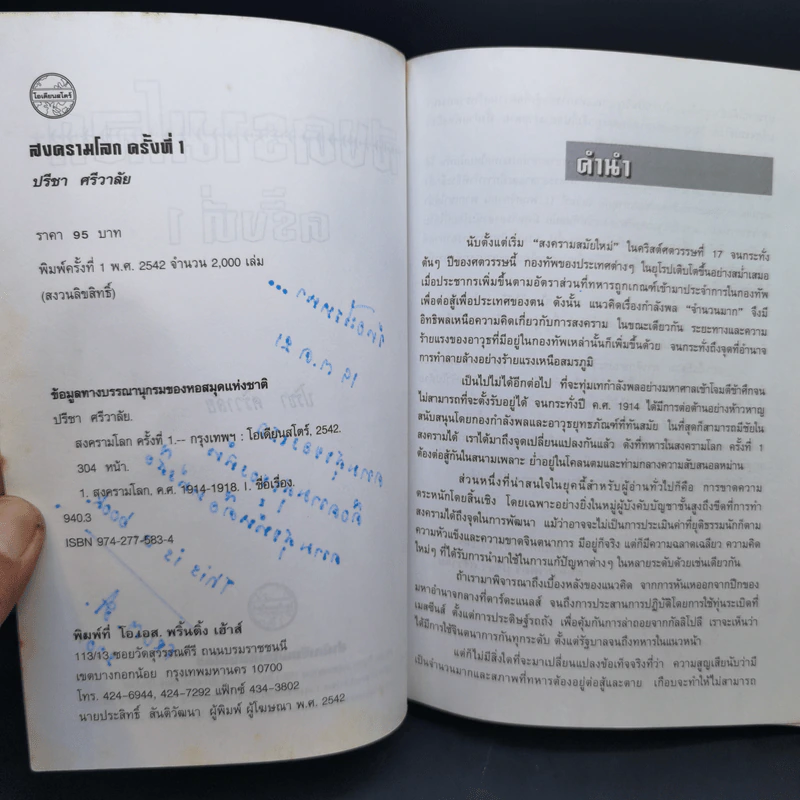 โอเดียนสโตร์
สงครามโลก ครั้งที่ 1
ปรีชา ศรีวาลัย
ราคา 95 บาท
พิมพ์ครั้งที่ 1 พ.ศ. 2542 จำนวน 2,000 เล่ม
(สงวนลิขสิทธิ์)
ข้อมูลทางบรรณานุกรมของหอสมุดแห่งชาติ
ปรีชา ศรีวาลัย.
สงครามโลก ครั้งที่ 1.-- กรุงเทพฯ : โอเดียนสโตร์, 2542.
304 หน้า.
1. สงครามโลก, ค.ศ. 1914-1918. I. ชื่อเรื่อง.
940.3
ISBN 974-277-583-4
This is a book
พิมพ์ที่ โอ.เอส. พริ้นติ้ง เฮ้าส์
113/13 ซอยวัดสุวรรณคีรี ถนนบรมราชชนนี
เขตบางกอกน้อย กรุงเทพมหานคร 10700
โทร. 424-6944, 424-7292 แฟ็กซ์ 434-3802
นายประสิทธิ์ สันติวัฒนา ผู้พิมพ์ ผู้โฆษณา พ.ศ. 2542
คำนำ
นับตั้งแต่เริ่ม “สงครามสมัยใหม่” ในคริสต์ศตวรรษที่ 17 จนกระทั่ง
ต้นๆ ปีของศตวรรษนี้ กองทัพของประเทศต่างๆ ในยุโรปเติบโตขึ้นอย่างสม่ำเสมอ
เมื่อประชากรเพิ่มขึ้นตามอัตราส่วนที่ทหารถูกเกณฑ์เข้ามาประจำการในกองทัพ
เพื่อต่อสู้เพื่อประเทศของตน ดังนั้น แนวคิดเรื่องกำลังพล “จำนวนมาก” จึงมี
อิทธิพลเหนือความคิดเกี่ยวกับการสงคราม ในขณะเดียวกัน ระยะทางและความ
ร้ายแรงของอาวุธที่มีอยู่ในกองทัพเหล่านั้นก็เพิ่มขึ้นด้วย จนกระทั่งถึงจุดที่อำนาจ
การทำลายล้างอย่างร้ายแรงเหนือสมรภูมิ
เป็นไปไม่ได้อีกต่อไป ที่จะทุ่มเทกำลังอย่างมหาศาลเข้าโจมตีข้าศึกจน
ไม่สามารถที่จะตั้งรับอยู่ได้ จนกระทั่งปี ค.ศ. 1914 ได้มีการต่อต้านอย่างห้าวหาญ
สนับสนุนโดยกองกำลังและอาวุธยุทธภัณฑ์ที่ทันสมัย ในที่สุดก็สามารถมีชัยใน
สงครามได้ เราได้มาถึงจุดเปลี่ยนแปลงกันแล้ว ดังที่ทหารในสงครามโลก ครั้งที่ 1
ต้องต่อสู้กันในสนามเพลาะ ย่ำอยู่ในโคลนตมและท่ามกลางความสับสนอลหม่าน
ส่วนหนึ่งที่น่าสนใจในยุคนี้สำหรับผู้อ่านทั่วไปก็คือ การขาดความ
ตระหนักโดยสิ้นเชิง โดยเฉพาะอย่างยิ่งในหมู่ผู้บังคับบัญชาชั้นสูงถึงขีดที่การทำ
สงครามได้ถึงจุดในการพัฒนา แม้ว่าอาจจะไม่เป็นการประเมินค่าที่ยุติธรรมนักก็ตาม
ความหัวแข็งและความขาดจินตนาการ มีอยู่ก็จริง แต่ก็มีความฉลาดเฉลียว ความคิด
ใหม่ๆ ที่ได้รับการนำมาใช้ในการแก้ปัญหาต่างๆ ในหลายระดับด้วยเช่นเดียวกัน
ถ้าเรามาพิจารณาถึงเบื้องหลังของแนวคิด จากการหันเหออกจากปีกของ
มหาอำนาจกลางที่ดาร์ดะแนลส์ จนถึงการประสานการปฏิบัติโดยการใช้ทุ่นระเบิดที่
เมสซีนส์ ตั้งแต่การประดิษฐ์รถถัง เพื่อคุ้มกันการล่าถอยจากกัลลิโปลี เราจะเห็นว่า
ได้มีการใช้จินตนาการกันทุกระดับ ตั้งแต่รัฐบาลจนถึงทหารในแนวหน้า
แต่ก็ไม่มีสิ่งใดที่จะมาเปลี่ยนแปลงข้อเท็จจริงที่ว่า ความสูญเสียนับว่ามี
เป็นจำนวนมากและสภาพที่ทหารต้องอยู่ต่อสู้และตาย เกือบจะทำให้ไม่สามารถ